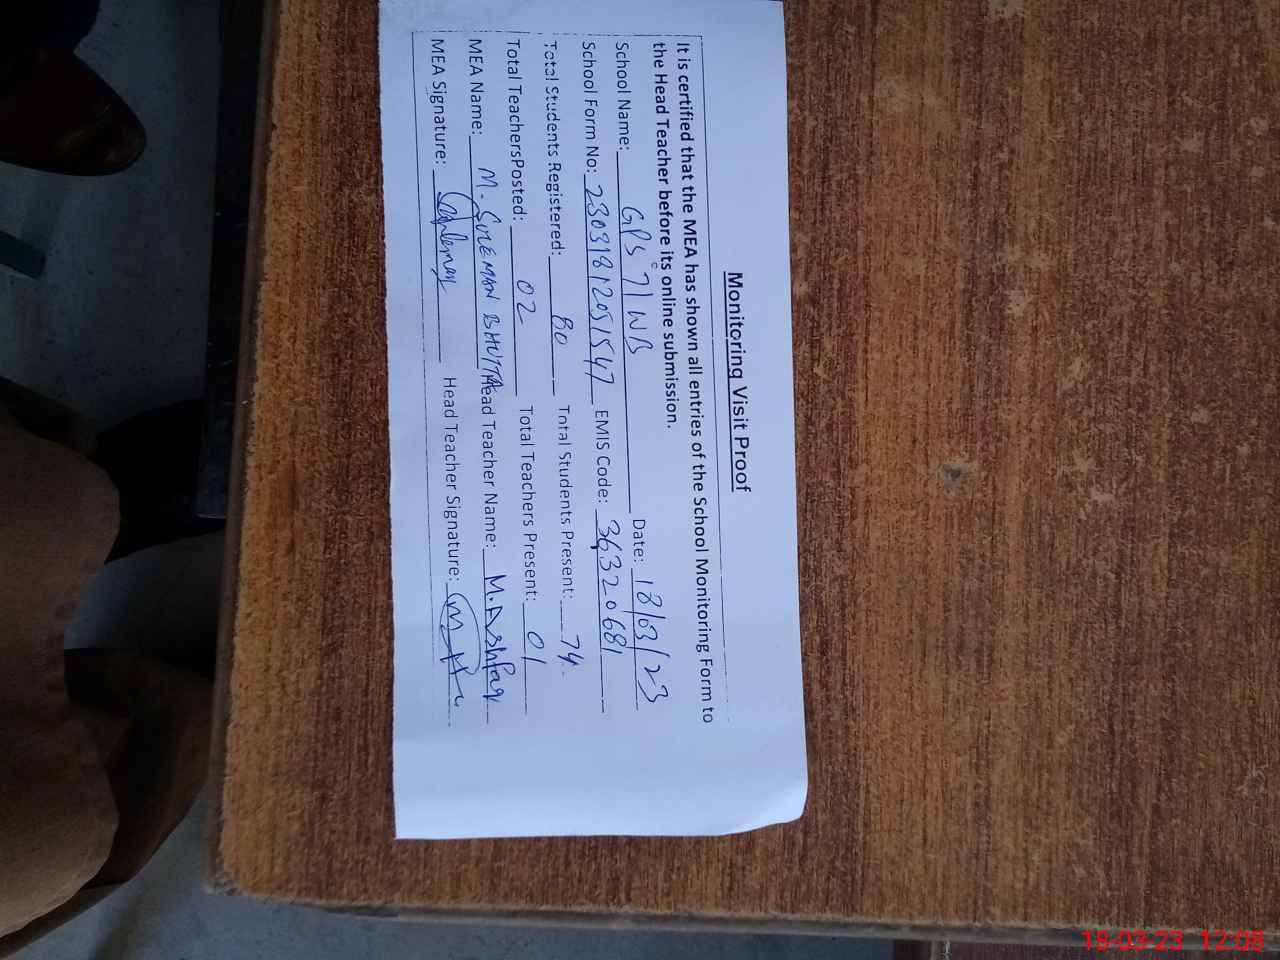 Monitoring Visit Proof
It is certified that the MEA has shown all entries of the School Monitoring Form to
the Head Teacher before its online submission.
School Name: GPS 71 WB Date: 18/03/23
School Form No: 23031812051547 EMIS Code: 36320681
Total Students Registered: 80 Total Students Present: 74
Total TeachersPosted: 02 Total Teachers Present: 01
MEA Name: M. SULEMAN BHUTTA Head Teacher Name: M. Ashfaq
MEA Signature: Head Teacher Signature:
18-03-23 12:08